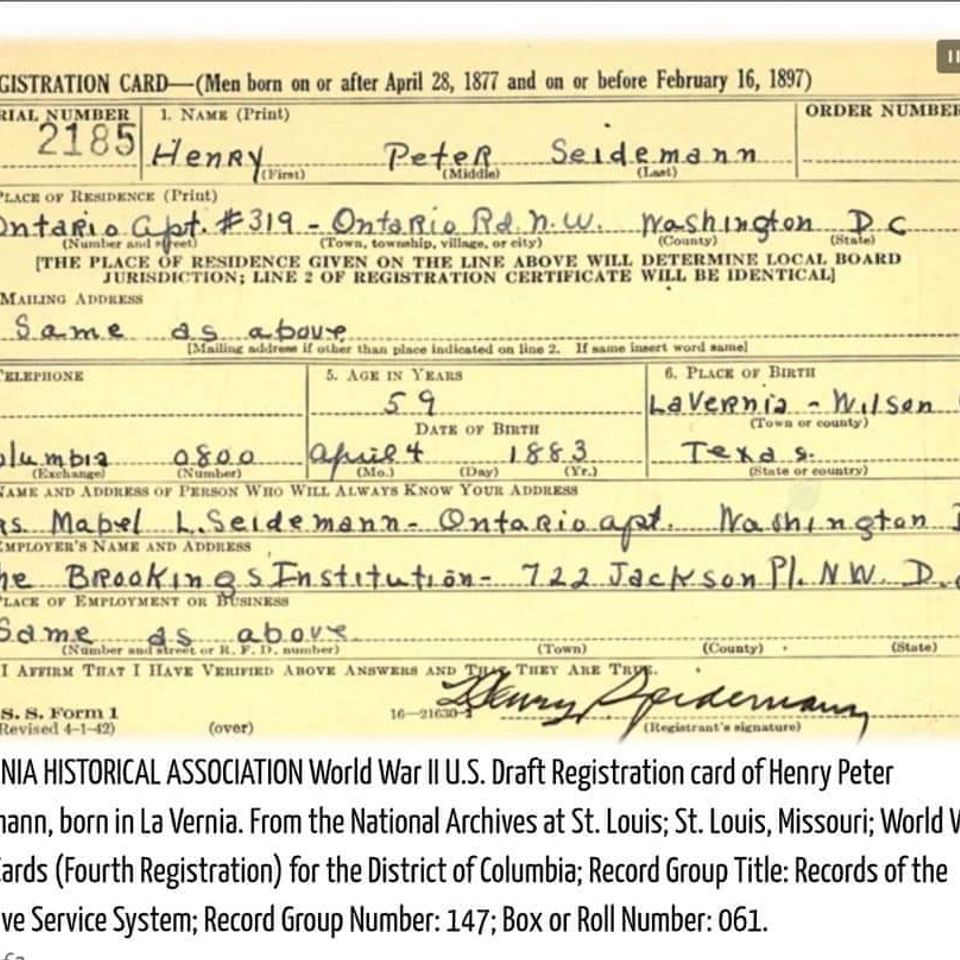 GISTRATION CARD—(Men born on or after April 28, 1877 and on or before February 16, 1897)
RIAL NUMBER 1. NAME (Print) ORDER NUMBER
2185 Henry Peter Seidemann
(First) (Middle) (Last)
PLACE OF RESIDENCE (Print)
Ontario Apt. #319 - Ontario Rd. N.W. Washington D C
(Number and street) (Town, township, village, or city) (County) (State)
[THE PLACE OF RESIDENCE GIVEN ON THE LINE ABOVE WILL DETERMINE LOCAL BOARD
JURISDICTION; LINE 2 OF REGISTRATION CERTIFICATE WILL BE IDENTICAL]
MAILING ADDRESS
Same as above
[Mailing address if other than place indicated on line 2. If same insert word same]
ELEPHONE 5. AGE IN YEARS 6. PLACE OF BIRTH
59 LaVernia - Wilson
DATE OF BIRTH (Town or county)
olumbia 0800 April 4 1883 Texas.
(Exchange) (Number) (Mo.) (Day) (Yr.) (State or country)
NAME AND ADDRESS OF PERSON WHO WILL ALWAYS KNOW YOUR ADDRESS
rs Mabel L. Seidemann - Ontario apt. Washington D
EMPLOYER'S NAME AND ADDRESS
he Brookings Institution - 722 Jackson Pl. N.W. D.C
PLACE OF EMPLOYMENT OR BUSINESS
Same as above
(Number and street or R. F. D. number) (Town) (County) (State)
I AFFIRM THAT I HAVE VERIFIED ABOVE ANSWERS AND THAT THEY ARE TRUE.
Henry P Seidemann
S. S. Form 1 16—21630-1
(Revised 4-1-42) (over) (Registrant's signature)
NIA HISTORICAL ASSOCIATION World War II U.S. Draft Registration card of Henry Peter
mann, born in La Vernia. From the National Archives at St. Louis; St. Louis, Missouri; World W
ards (Fourth Registration) for the District of Columbia; Record Group Title: Records of the
ve Service System; Record Group Number: 147; Box or Roll Number: 061.